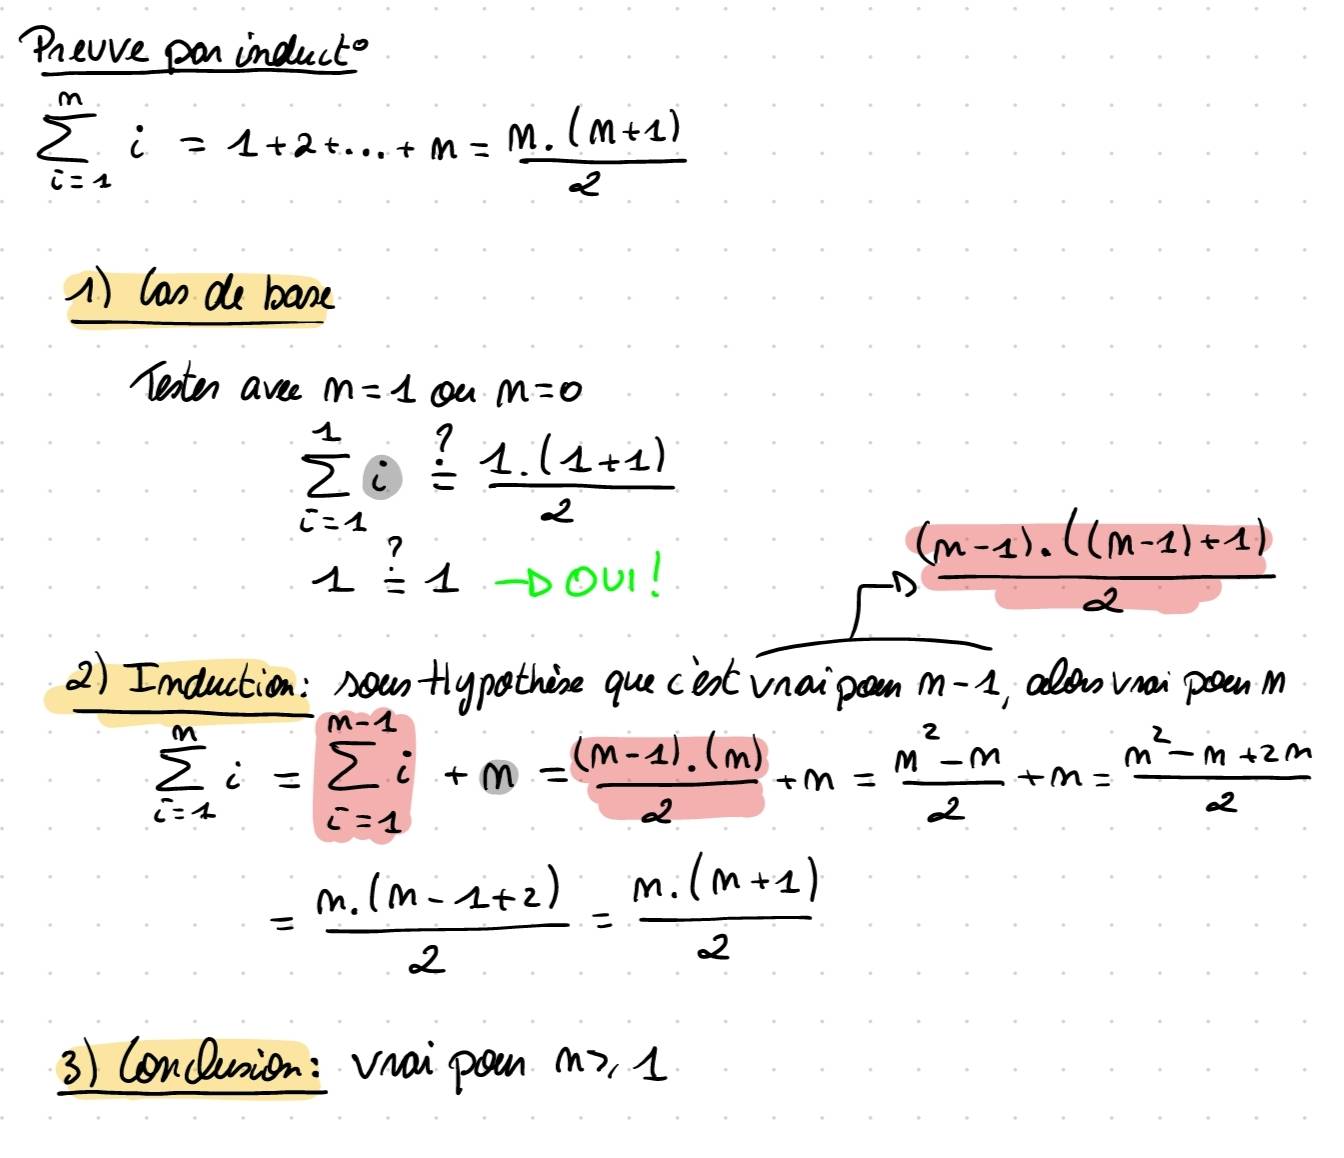 Preuve par induct°
∑_{i=1}^{n} i = 1+2+...+n = n.(n+1)/2
1) Cas de base
Tester avec n=1 ou n=0
∑_{i=1}^{1} i ≟ 1.(1+1)/2
1 ≟ 1 → OUI!
(n-1).((n-1)+1)/2
2) Induction: sous Hypothèse que c'est vrai pour n-1, alors vrai pour n
∑_{i=1}^{n} i = ∑_{i=1}^{n-1} i + n = (n-1).(n)/2 + n = n²-n/2 + n = n²-n+2n/2
= n.(n-1+2)/2 = n.(n+1)/2
3) Conclusion: vrai pour n⩾1